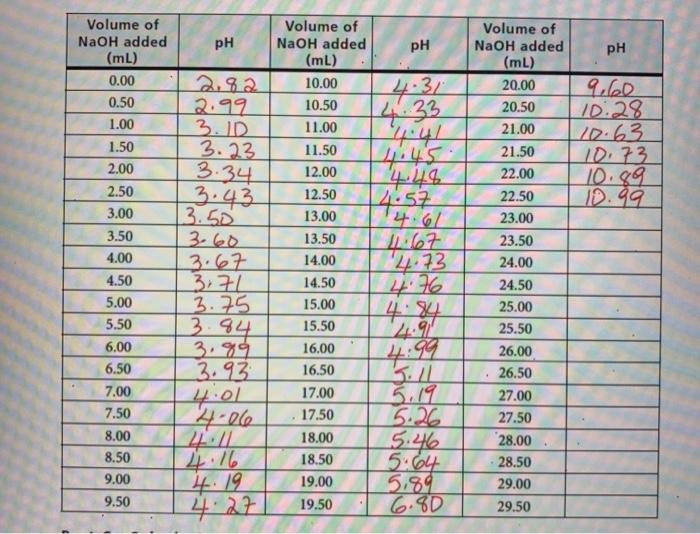 Volume of NaOH added (mL) pH Volume of NaOH added (mL) pH Volume of NaOH added (mL) pH
0.00 2.82 10.00 4.31 20.00 9.60
0.50 2.99 10.50 4.33 20.50 10.28
1.00 3.10 11.00 4.41 21.00 10.63
1.50 3.23 11.50 4.45 21.50 10.73
2.00 3.34 12.00 4.48 22.00 10.89
2.50 3.43 12.50 4.57 22.50 10.99
3.00 3.50 13.00 4.61 23.00
3.50 3.60 13.50 4.67 23.50
4.00 3.67 14.00 4.73 24.00
4.50 3.71 14.50 4.76 24.50
5.00 3.75 15.00 4.84 25.00
5.50 3.84 15.50 4.91 25.50
6.00 3.89 16.00 4.99 26.00
6.50 3.93 16.50 5.11 26.50
7.00 4.01 17.00 5.19 27.00
7.50 4.06 17.50 5.26 27.50
8.00 4.11 18.00 5.46 28.00
8.50 4.16 18.50 5.64 28.50
9.00 4.19 19.00 5.89 29.00
9.50 4.27 19.50 6.80 29.50